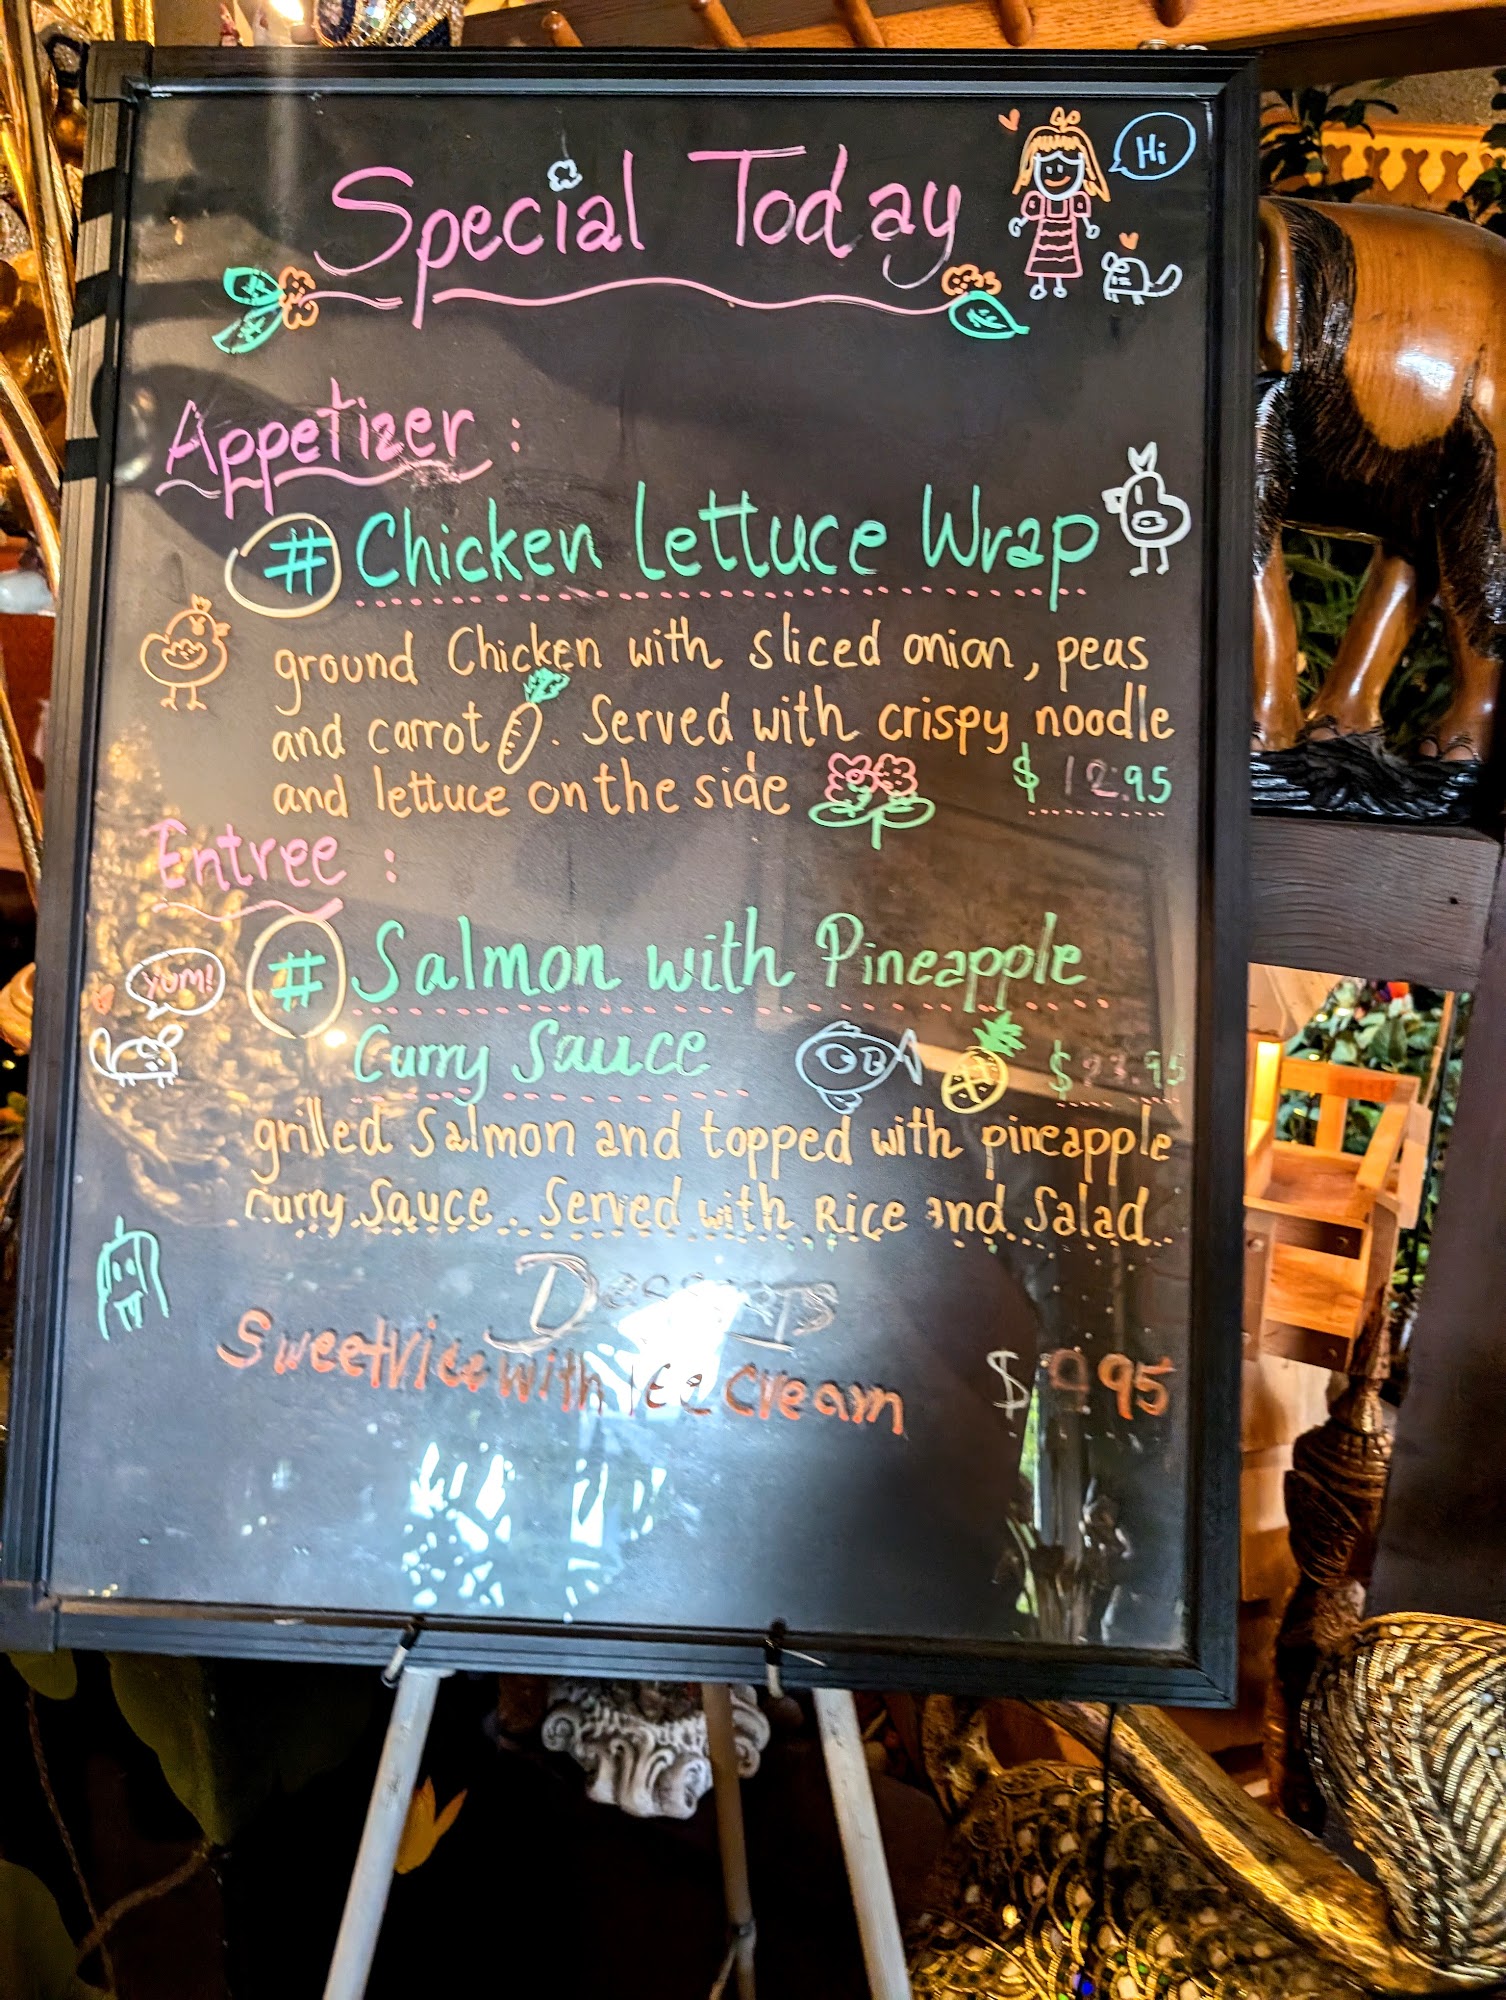 Special Today
Hi
Appetizer :
# Chicken Lettuce Wrap
ground Chicken with sliced onion, peas
and carrot. Served with crispy noodle
and lettuce on the side $ 12.95
Entree :
YUM!
# Salmon with Pineapple
Curry Sauce $ 23.95
grilled Salmon and topped with pineapple
curry Sauce. Served with Rice and Salad
Desserts
Sweet Rice with Ice Cream $ 9.95